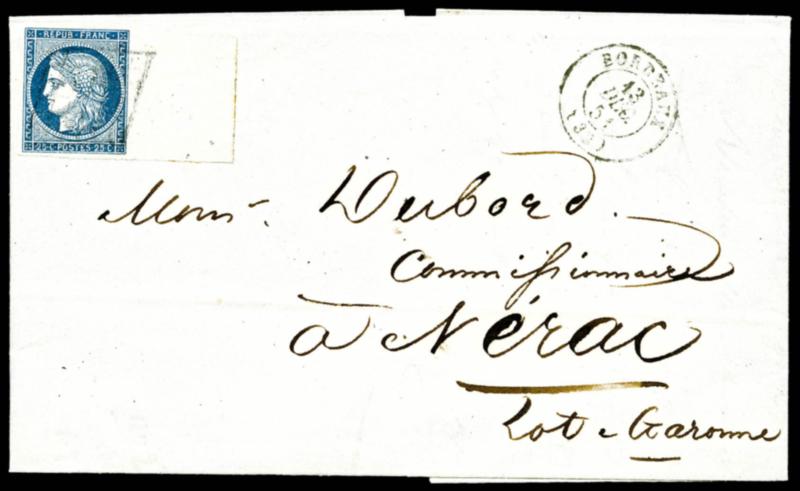 REPUB·FRANC·
25·C·POSTES·25·C
BORDEAUX
13
DEC.
51
(32)
Monsr. Dubord.
Commissionnaire
à Nérac
Lot-e-Garonne